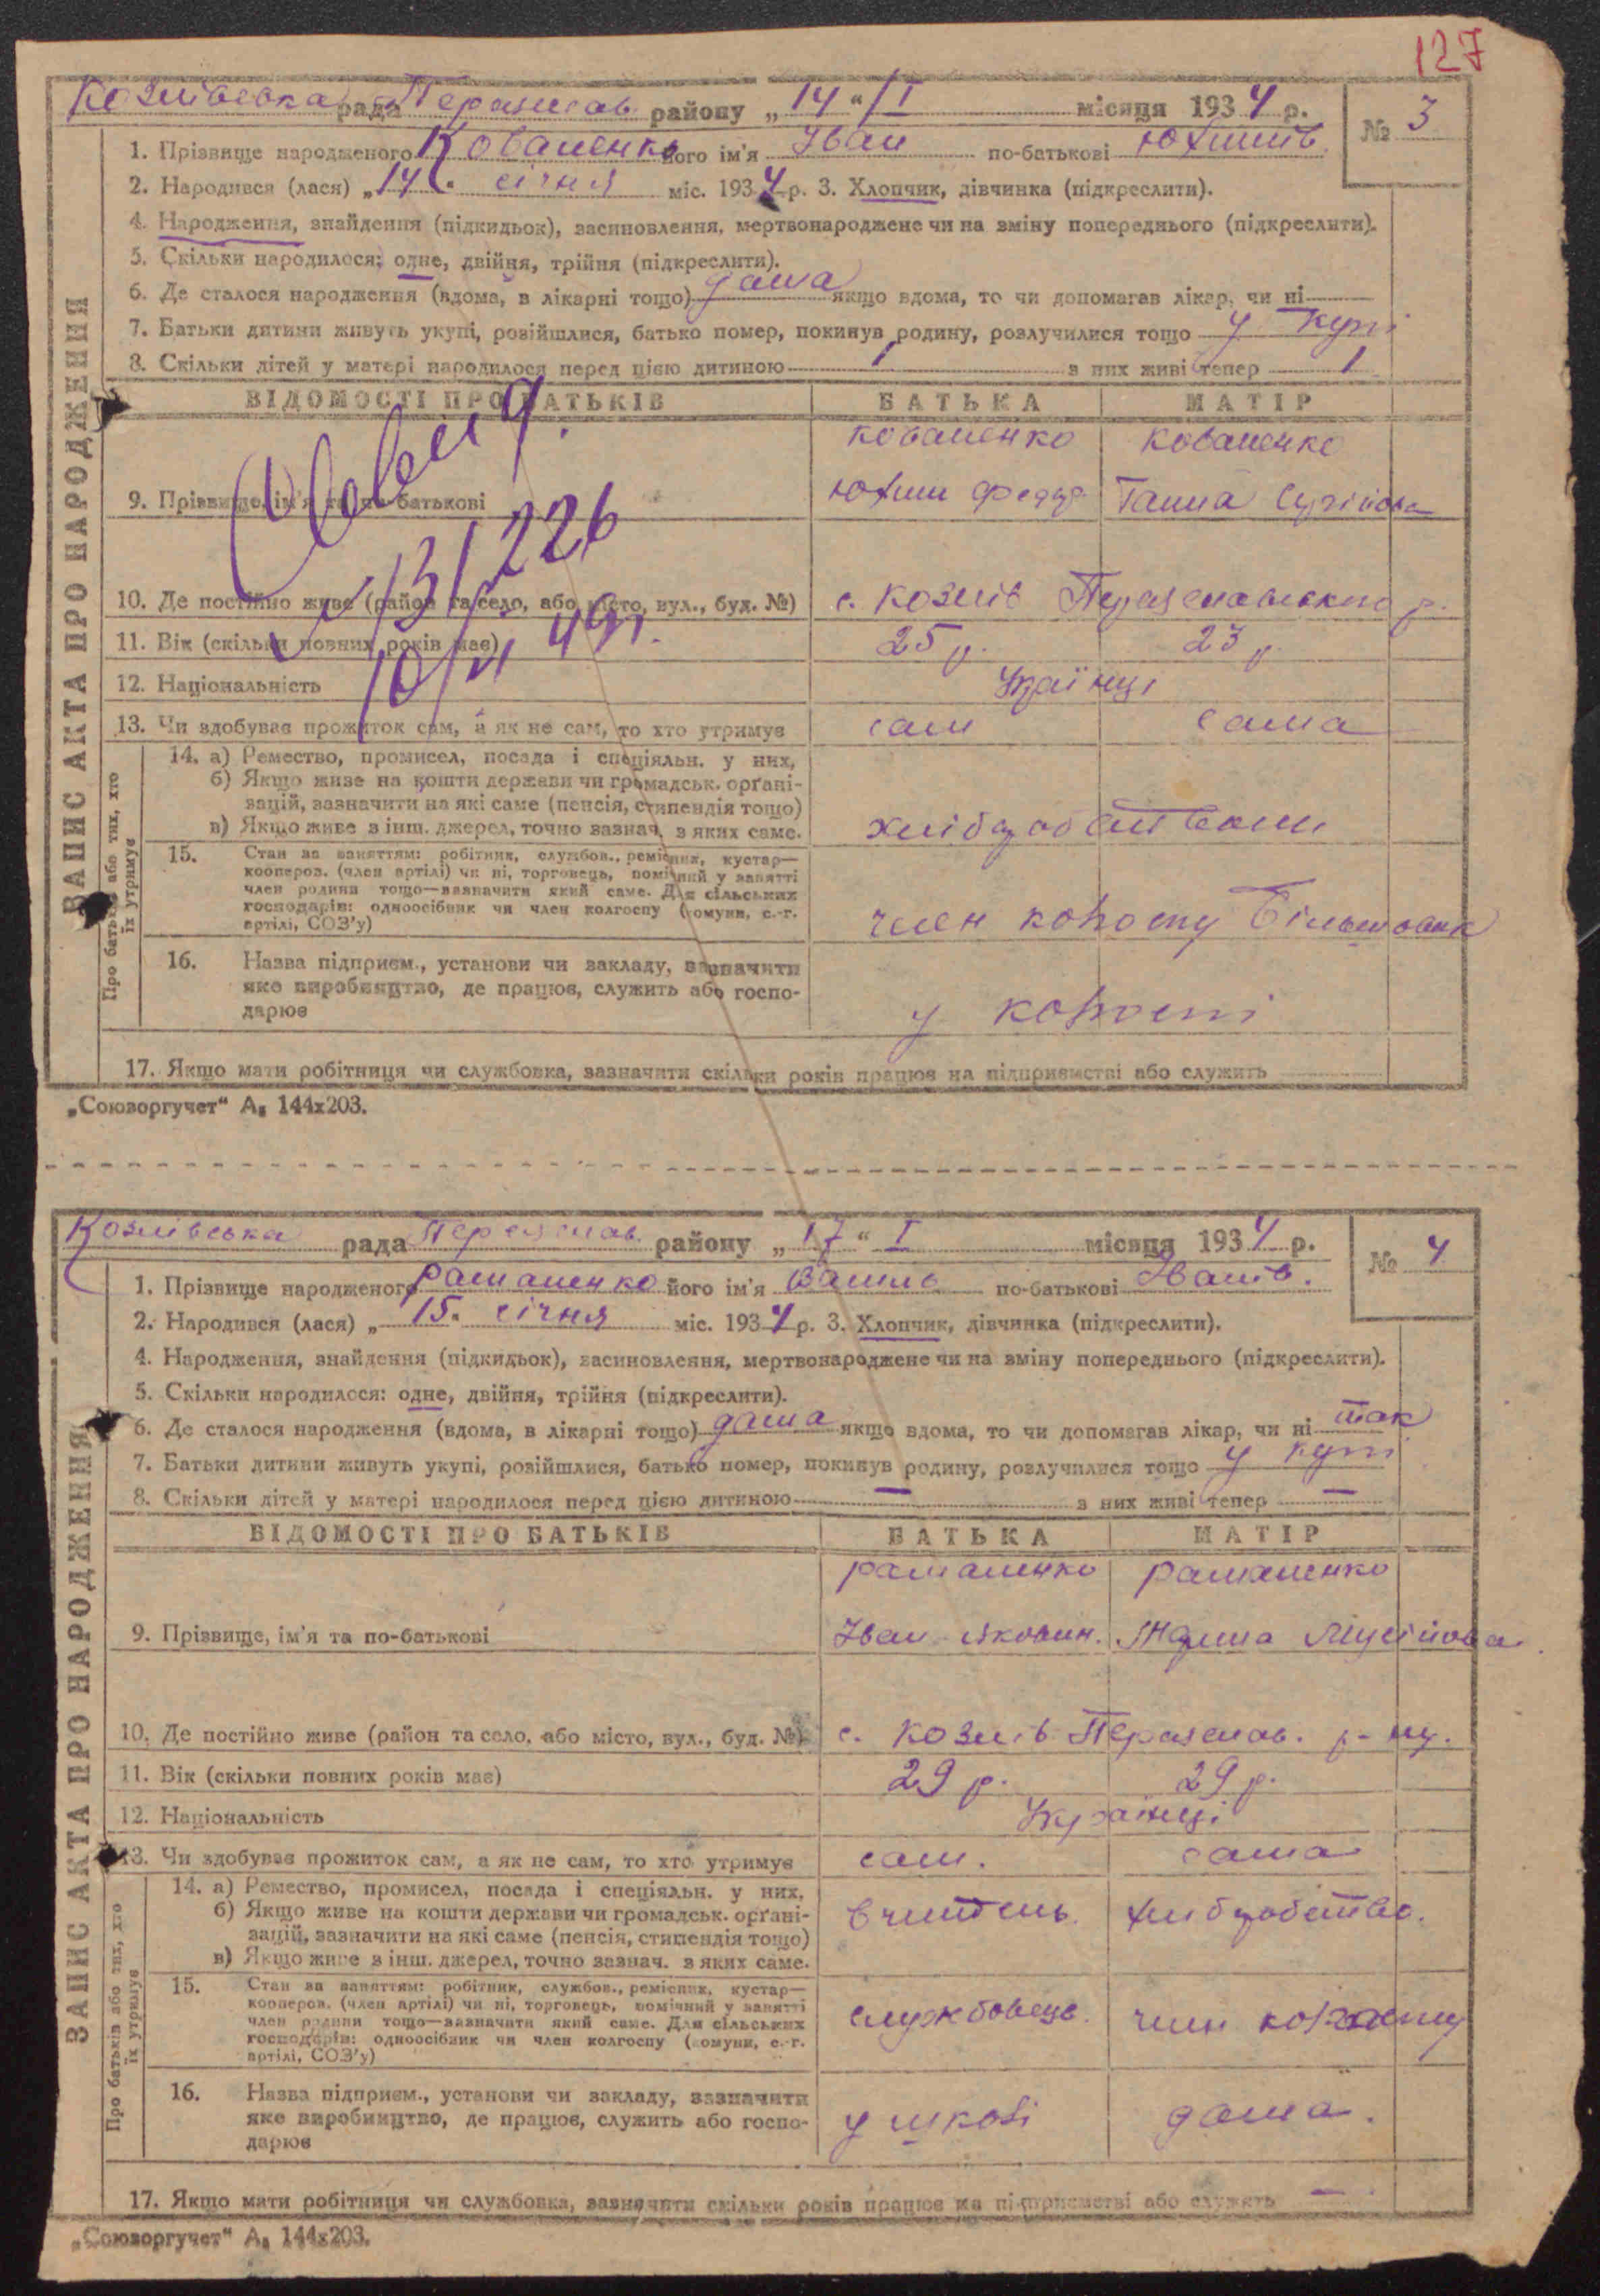 127
Козлівська рада Переяслав району „14“ I місяця 1934 р.
№ 3
1. Прізвище народженого Коваленко його ім'я Іван по-батькові Юхимів.
2. Народився (лася) „14“ січня міс. 1934 р. 3. Хлопчик, дівчинка (підкреслити).
4. Народження, знайдення (підкидьок), засиновлення, мертвонароджене чи на зміну попереднього (підкреслити).
5. Скільки народилося: одне, двійня, трійня (підкреслити).
6. Де сталося народження (вдома, в лікарні тощо) дома якщо вдома, то чи допомагав лікар, чи ні
7. Батьки дитини живуть укупі, розійшлися, батько помер, покинув родину, розлучилися тощо у купі
8. Скільки дітей у матері народилося перед цією дитиною 1 з них живі тепер 1
ЗАПИС АКТА ПРО НАРОДЖЕННЯ
ВІДОМОСТІ ПРО БАТЬКІВ БАТЬКА МАТІР
Коваленко Коваленко
9. Прізвище, ім'я та по-батькові Юхим Федор. Ганна
226
10. Де постійно живе (район та село, або місто, вул., буд. №) с. Козлів Переяславського р.
11. Вік (скільки повних років має) 25 р. 23 р.
49р.
12. Національність Українці
13. Чи здобуває прожиток сам, а як не сам, то хто утримує сам сама
Про батьків або тих, хто їх утримує
14. а) Ремество, промисел, посада і спеціяльн. у них,
б) Якщо живе на кошти держави чи громадськ. орґані-
зацій, зазначити на які саме (пенсія, стипендія тощо)
в) Якщо живе з інш. джерел, точно зазнач. з яких саме.
хлібороби
15. Стан за заняттям: робітник, службов., ремісник, кустар—
кооперов. (член артілі) чи ні, торговець, помічний у занятті
член родини тощо—зазначити який саме. Для сільських
господарів: одноосібник чи член колгоспу (комуни, с.-г.
артілі, СОЗ'у)
член колгоспу Більшовик
16. Назва підприєм., установи чи закладу, зазначити
яке виробництво, де працює, служить або госпо-
дарює
у колгоспі
17. Якщо мати робітниця чи службовка, зазначити скільки років працює на підприємстві або служить
„Союзоргучет“ А₅ 144х203.
Козлівська рада Переяслав. району „17“ I місяця 1934 р.
№ 4
1. Прізвище народженого Раманенко його ім'я Василь по-батькові Іванів.
2. Народився (лася) „15“ січня міс. 1934 р. 3. Хлопчик, дівчинка (підкреслити).
4. Народження, знайдення (підкидьок), засиновлення, мертвонароджене чи на зміну попереднього (підкреслити).
5. Скільки народилося: одне, двійня, трійня (підкреслити).
6. Де сталося народження (вдома, в лікарні тощо) дома якщо вдома, то чи допомагав лікар, чи ні так
7. Батьки дитини живуть укупі, розійшлися, батько помер, покинув родину, розлучилися тощо у купі
8. Скільки дітей у матері народилося перед цією дитиною — з них живі тепер —
ЗАПИС АКТА ПРО НАРОДЖЕННЯ
ВІДОМОСТІ ПРО БАТЬКІВ БАТЬКА МАТІР
Раманенко Раманенко
9. Прізвище, ім'я та по-батькові Іван Якович. Мусійова
10. Де постійно живе (район та село, або місто, вул., буд. №) с. Козлів Переяслав. р-ну.
11. Вік (скільки повних років має) 29 р. 29 р.
12. Національність Українці
13. Чи здобуває прожиток сам, а як не сам, то хто утримує сам. сама
Про батьків або тих, хто їх утримує
14. а) Ремество, промисел, посада і спеціяльн. у них,
б) Якщо живе на кошти держави чи громадськ. орґані-
зацій, зазначити на які саме (пенсія, стипендія тощо)
в) Якщо живе з інш. джерел, точно зазнач. з яких саме.
вчитель. хлібробство.
15. Стан за заняттям: робітник, службов., ремісник, кустар—
кооперов. (член артілі) чи ні, торговець, помічний у занятті
член родини тощо—зазначити який саме. Для сільських
господарів: одноосібник чи член колгоспу (комуни, с.-г.
артілі, СОЗ'у)
службовець. член колгоспу
16. Назва підприєм., установи чи закладу, зазначити
яке виробництво, де працює, служить або госпо-
дарює
у школі дома.
17. Якщо мати робітниця чи службовка, зазначити скільки років працює на підприємстві або служить —
„Союзоргучет“ А₅ 144х203.